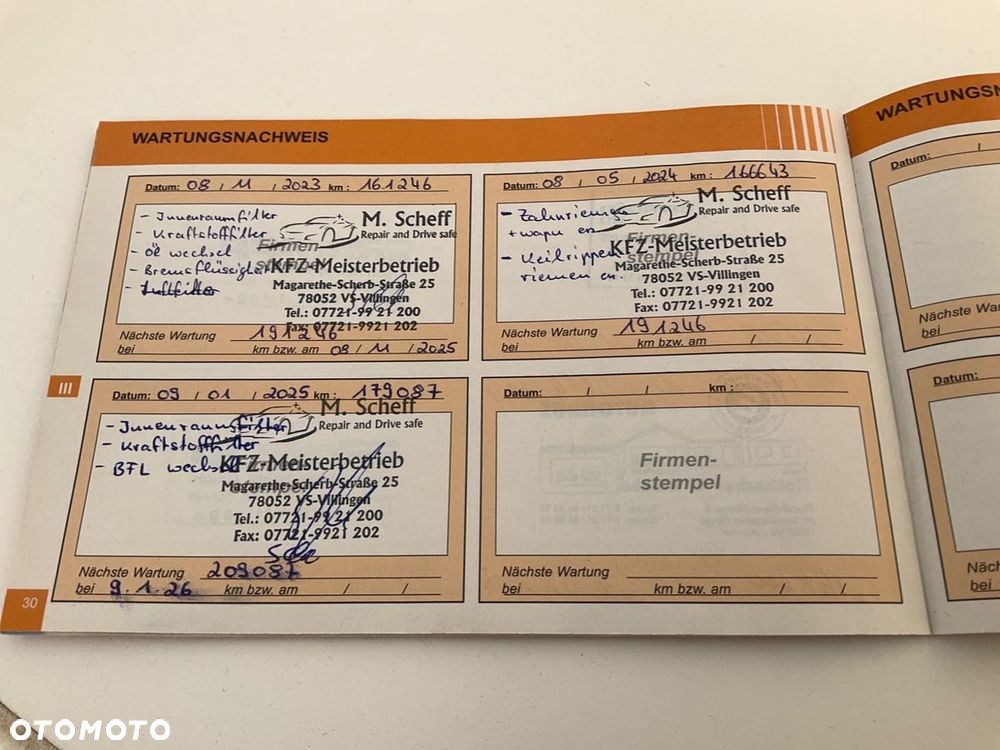 WARTUNGSNACHWEIS
Datum: 08 / 11 / 2023 km : 161246
- Innenraumfilter
- Kraftstofffilter
- Öl wechsel
- Bremsflüssigkeit
- Luftfilter
Firmen-
stempel
M. Scheff
Repair and Drive safe
KFZ-Meisterbetrieb
Magarethe-Scherb-Straße 25
78052 VS-Villingen
Tel.: 07721-99 21 200
Fax: 07721-9921 202
Nächste Wartung 191246
bei km bzw. am 08 / 11 / 2025
Datum: 08 / 05 / 2024 km : 166643
- Zahnriemen
+ wapu er.
- Keilrippen
riemen er.
Firmen-
stempel
M. Scheff
Repair and Drive safe
KFZ-Meisterbetrieb
Magarethe-Scherb-Straße 25
78052 VS-Villingen
Tel.: 07721-99 21 200
Fax: 07721-9921 202
Nächste Wartung 191246
bei km bzw. am / /
III
Datum: 09 / 01 / 2025 km : 179087
- Innenraumfilter
- Kraftstofffilter
- BFL wechsel
M. Scheff
Repair and Drive safe
KFZ-Meisterbetrieb
Magarethe-Scherb-Straße 25
78052 VS-Villingen
Tel.: 07721-99 21 200
Fax: 07721-9921 202
Nächste Wartung 209087
bei 9.1.26 km bzw. am / /
Datum: / / km :
Firmen-
stempel
Nächste Wartung
bei km bzw. am / /
30
WARTUNGSN
Datum: /
Nächste War
bei
Datum:
Näch
bei
OTOMOTO